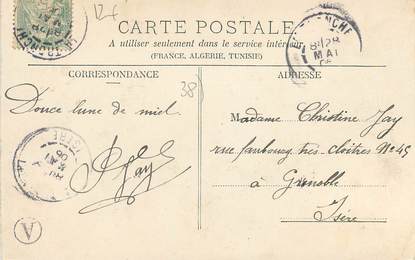 12f
CARTE POSTALE
A utiliser seulement dans le service intérieur
(FRANCE, ALGERIE, TUNISIE)
CORRESPONDANCE
ADRESSE
38
Douce lune de miel
Madame Christine Jay
rue faubourg très-cloîtres N° 45
à Grenoble
Isère
Jay
A
MAI
ISERE